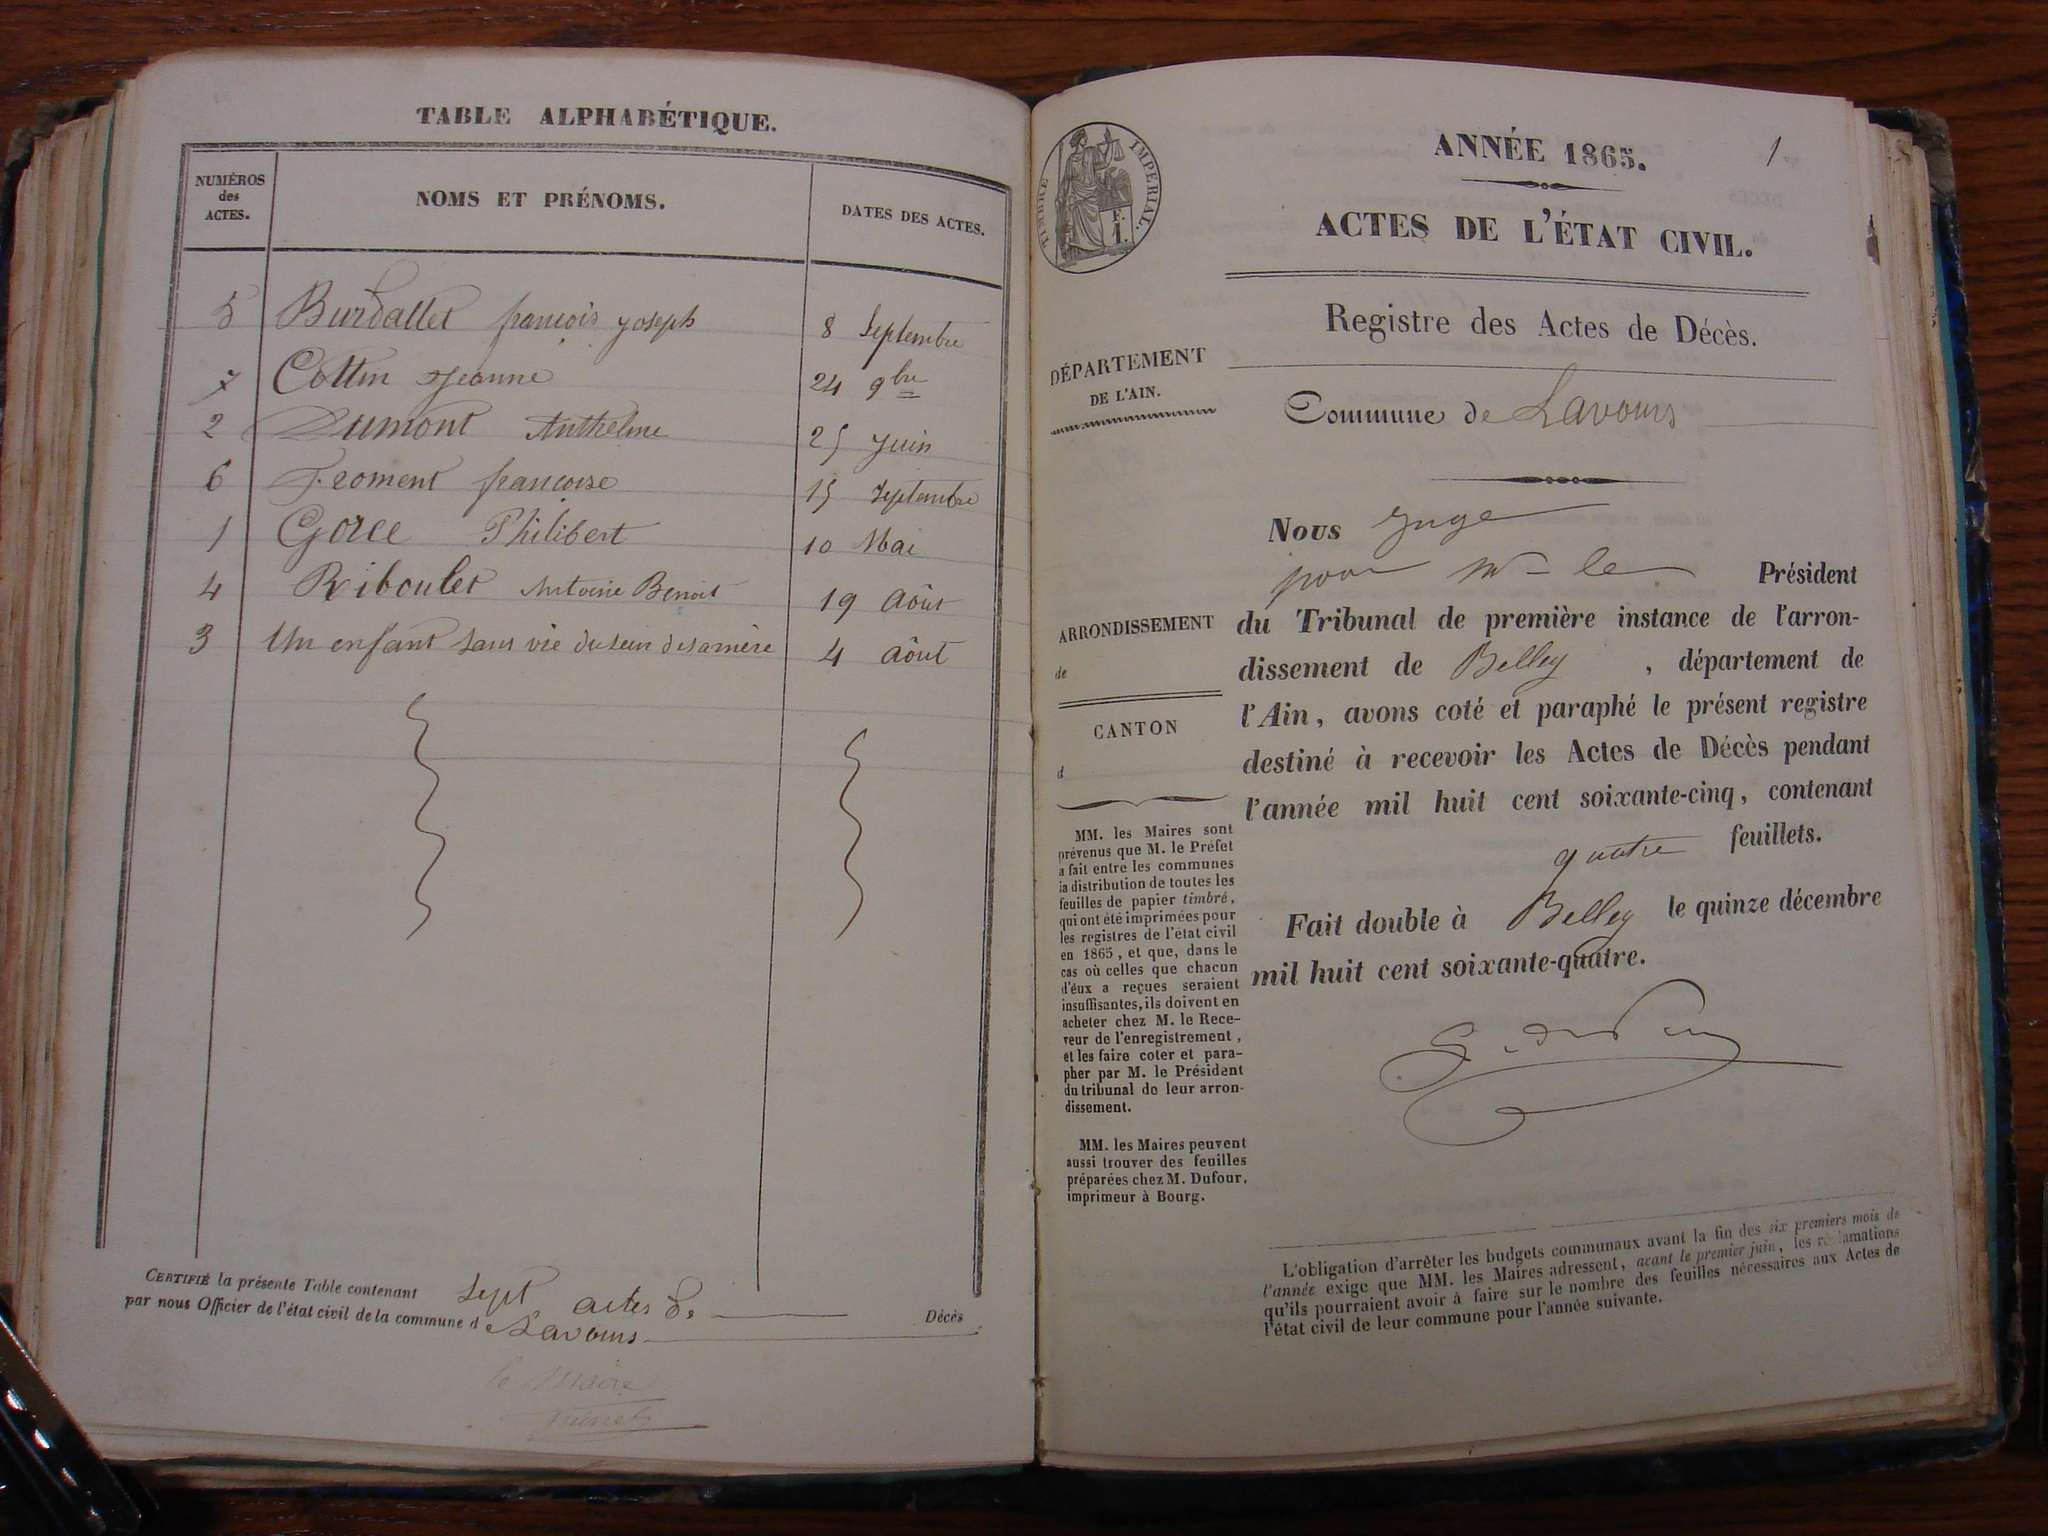 TABLE ALPHABÉTIQUE.
NUMÉROS
des
ACTES.
NOMS ET PRÉNOMS.
DATES DES ACTES.
5 Burdallet françois joseph 8 Septembre
7 Cottin Jeanne 24 9bre
2 Dumont Anthelme 25 juin
6 Froment françoise 15 Septembre
1 Gorce Philibert 10 Mai
4 Riboulet Antoine Benoit 19 Août
3 Un enfant sans vie du sein de sa mère 4 Août
CERTIFIÉ la présente Table contenant sept actes de Décès
par nous Officier de l'état civil de la commune de Lavours
le Maire
1
TIMBRE IMPÉRIAL.
F.
1.
ANNÉE 1865.
ACTES DE L'ÉTAT CIVIL.
Registre des Actes de Décès.
DÉPARTEMENT
DE L'AIN.
Commune de Lavours
ARRONDISSEMENT
de
CANTON
d
MM. les Maires sont
prévenus que M. le Préfet
a fait entre les communes
la distribution de toutes les
feuilles de papier timbré,
qui ont été imprimées pour
les registres de l'état civil
en 1865, et que, dans le
cas où celles que chacun
d'eux a reçues seraient
insuffisantes, ils doivent en
acheter chez M. le Rece-
veur de l'enregistrement,
et les faire coter et para-
pher par M. le Président
du tribunal de leur arron-
dissement.
MM. les Maires peuvent
aussi trouver des feuilles
préparées chez M. Dufour,
imprimeur à Bourg.
Nous Juge
pour Mr le Président
du Tribunal de première instance de l'arron-
dissement de Belley, département de
l'Ain, avons coté et paraphé le présent registre
destiné à recevoir les Actes de Décès pendant
l'année mil huit cent soixante-cinq, contenant
quatre feuillets.
Fait double à Belley le quinze décembre
mil huit cent soixante-quatre.
L'obligation d'arrêter les budgets communaux avant la fin des six premiers mois de
l'année exige que MM. les Maires adressent, avant le premier juin, les réclamations
qu'ils pourraient avoir à faire sur le nombre des feuilles nécessaires aux Actes de
l'état civil de leur commune pour l'année suivante.